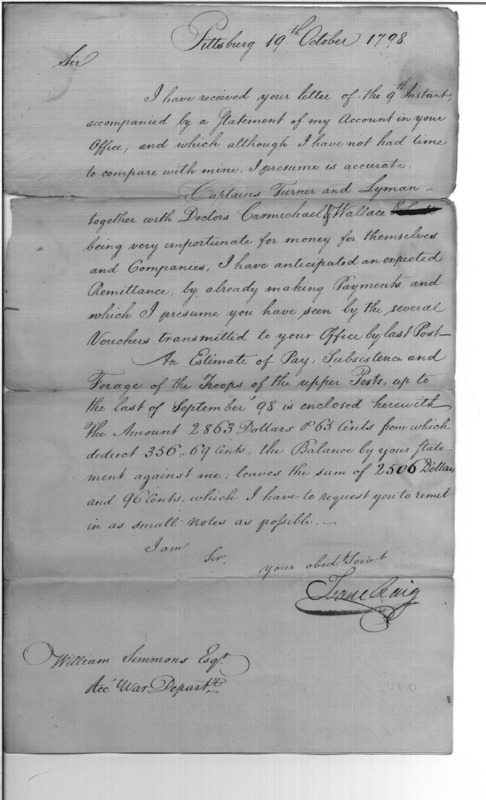 Pittsburg 19th October 1798.
Sir
I have received your letter of the 9th Instant,
accompanied by a Statement of my Account in your
Office, and which although I have not had time
to compare with mine, I presume is accurate.
Captains Turner and Lyman -
together with Doctors Carmichael & Wallace
being very importunate for money for themselves
and Companies, I have anticipated an expected
Remittance, by already making Payments, and
which I presume you have seen by the several
Vouchers transmitted to your Office by last Post -
An Estimate of Pay, Subsistence and
Forage of the Troops of the upper Posts, up to
the last of September 98 is enclosed herewith
the Amount 2863 Dollars & 65 Cents from which
deduct 356.69 Cents, the Balance by your State-
ment against me, leaves the sum of 2506 Dollars
and 96 Cents, which I have to request you to remit
in as small notes as possible. -
I am
Sir,
your obedt Servt
Isaac Craig
William Simmons Esqr
Acct War Departt